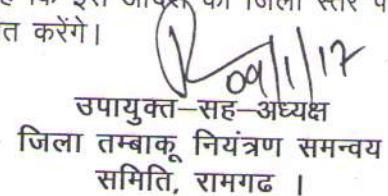 कि इस आदेश का जिला स्तर प
त करेंगे।
09/1/17
उपायुक्त–सह–अध्यक्ष
जिला तम्बाकू नियंत्रण समन्वय
समिति, रामगढ ।